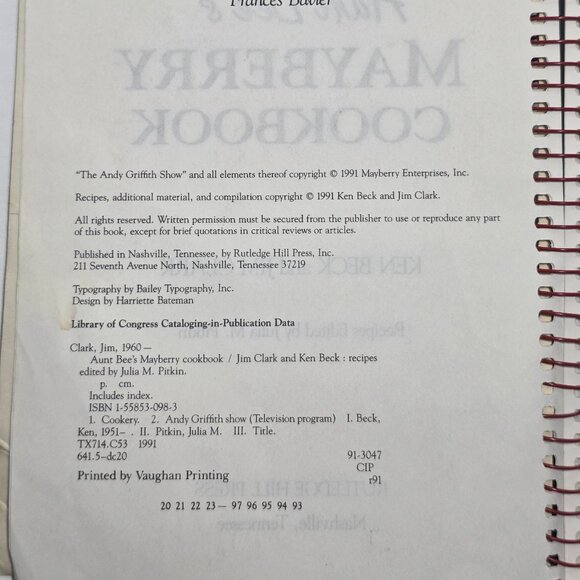 Frances Bavier
Aunt Bee's
MAYBERRY
COOKBOOK
"The Andy Griffith Show" and all elements thereof copyright © 1991 Mayberry Enterprises, Inc.
Recipes, additional material, and compilation copyright © 1991 Ken Beck and Jim Clark.
All rights reserved. Written permission must be secured from the publisher to use or reproduce any part
of this book, except for brief quotations in critical reviews or articles.
Published in Nashville, Tennessee, by Rutledge Hill Press, Inc.
211 Seventh Avenue North, Nashville, Tennessee 37219
KEN BECK
Typography by Bailey Typography, Inc.
Design by Harriette Bateman
Recipes Edited by Julia M. Pitkin
Library of Congress Cataloging-in-Publication Data
Clark, Jim, 1960–
Aunt Bee's Mayberry cookbook / Jim Clark and Ken Beck : recipes
edited by Julia M. Pitkin.
p. cm.
Includes index.
ISBN 1-55853-098-3
1. Cookery. 2. Andy Griffith show (Television program) I. Beck,
Ken, 1951– . II. Pitkin, Julia M. III. Title.
TX714.C53 1991
641.5–dc20 91-3047
CIP
Printed by Vaughan Printing r91
RUTLEDGE HILL PRESS
20 21 22 23 — 97 96 95 94 93
Nashville, Tennessee